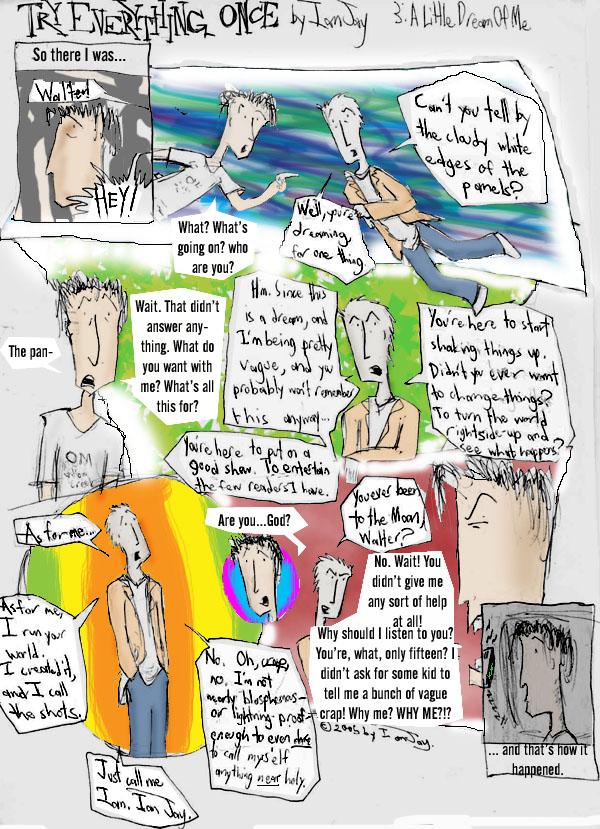 TRY EVERYTHING ONCE by Ian Jay 3: A Little Dream Of Me
So there I was...
Walter!
HEY!
What? What's
going on? who
are you?
Well, you're
dreaming,
for one thing.
Can't you tell by
the cloudy white
edges of the
panels?
The pan-
Wait. That didn't
answer any-
thing. What do
you want with
me? What's all
this for?
Hm. Since this
is a dream, and
I'm being pretty
vague, and you
probably won't remember
this anyway...
You're here to start
shaking things up.
Didn't you ever want
to change things?
To turn the world
rightside-up and
see what happens?
You're here to put on a
good show. To entertain
the few readers I have.
As for me...
As for me,
I run your
world.
I created it,
and I call
the shots.
Are you...God?
No. Oh, crap,
no. I'm not
nearly blasphemous-
or lightning-proof-
enough to even
to call myself
anything near holy.
Just call me
Ian. Ian Jay.
You ever been
to the Moon,
Walter?
No. Wait! You
didn't give me
any sort of help
at all!
Why should I listen to you?
You're, what, only fifteen? I
didn't ask for some kid to
tell me a bunch of vague
crap! Why me? WHY ME?!?
© 2005 by Ian Jay.
... and that's how it
happened.